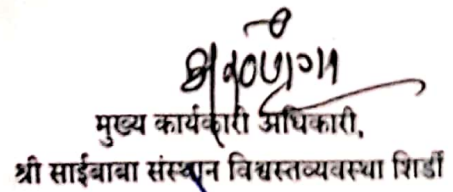 मुख्य कार्यकारी अधिकारी,
श्री साईबाबा संस्थान विश्वस्तव्यवस्था शिर्डी